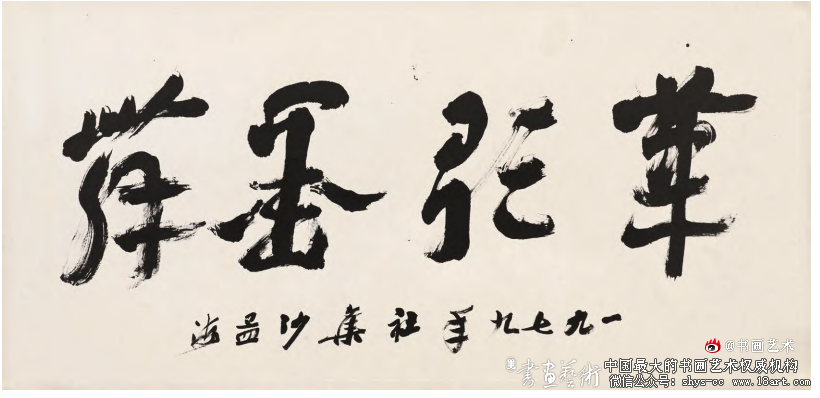 筆歌墨舞
一九七九年社集沙孟海
@书画艺术
書畫藝術
中国最大的书画艺术权威机构
微信公众号：shys-cc www.18art.com